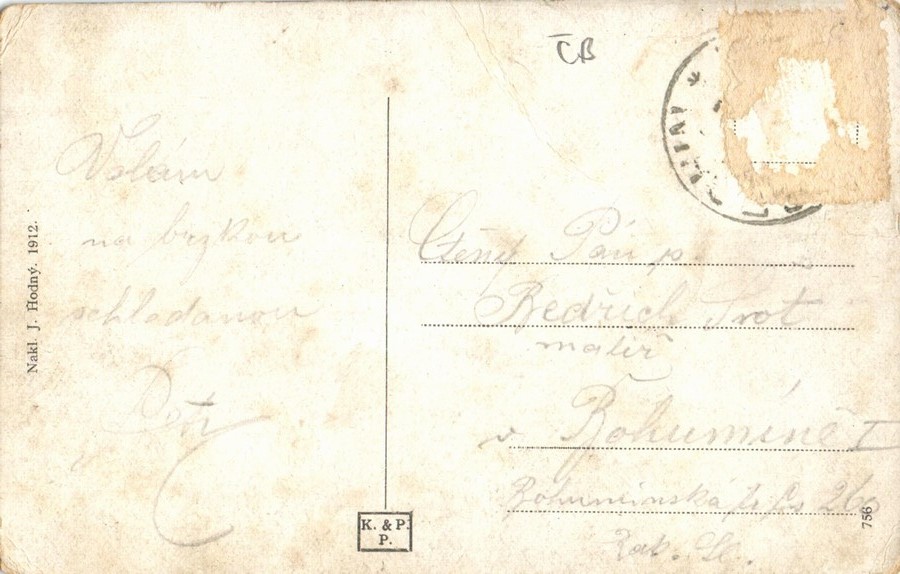 ČB
Volám
na brzkou
schledanou
Nakl. J. Hodný. 1912.
Ctěný Pán p.
Bedřich
malíř
v Bohumíně I
Bohumínská 260
K. & P.
P.
756